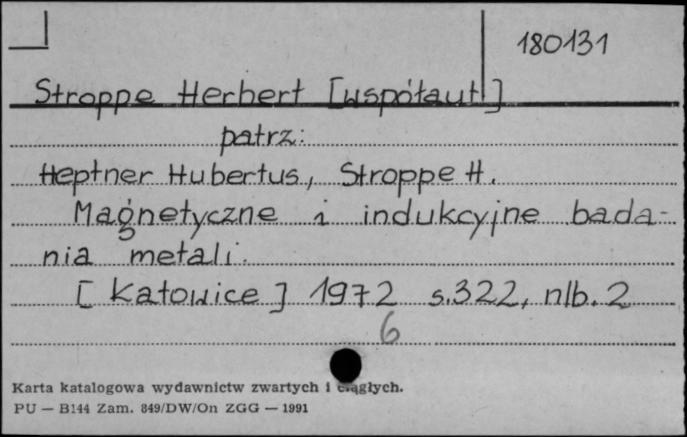 180131
Stroppe Herbert [współaut]
patrz:
Heptner Hubertus, Stroppe H.
Magnetyczne i indukcyjne bada-
nia metali.
[Katowice] 1972 s.322, nlb. 2
6
Karta katalogowa wydawnictw zwartych i ciągłych.
PU — B144 Zam. 849/DW/On ZGG — 1991